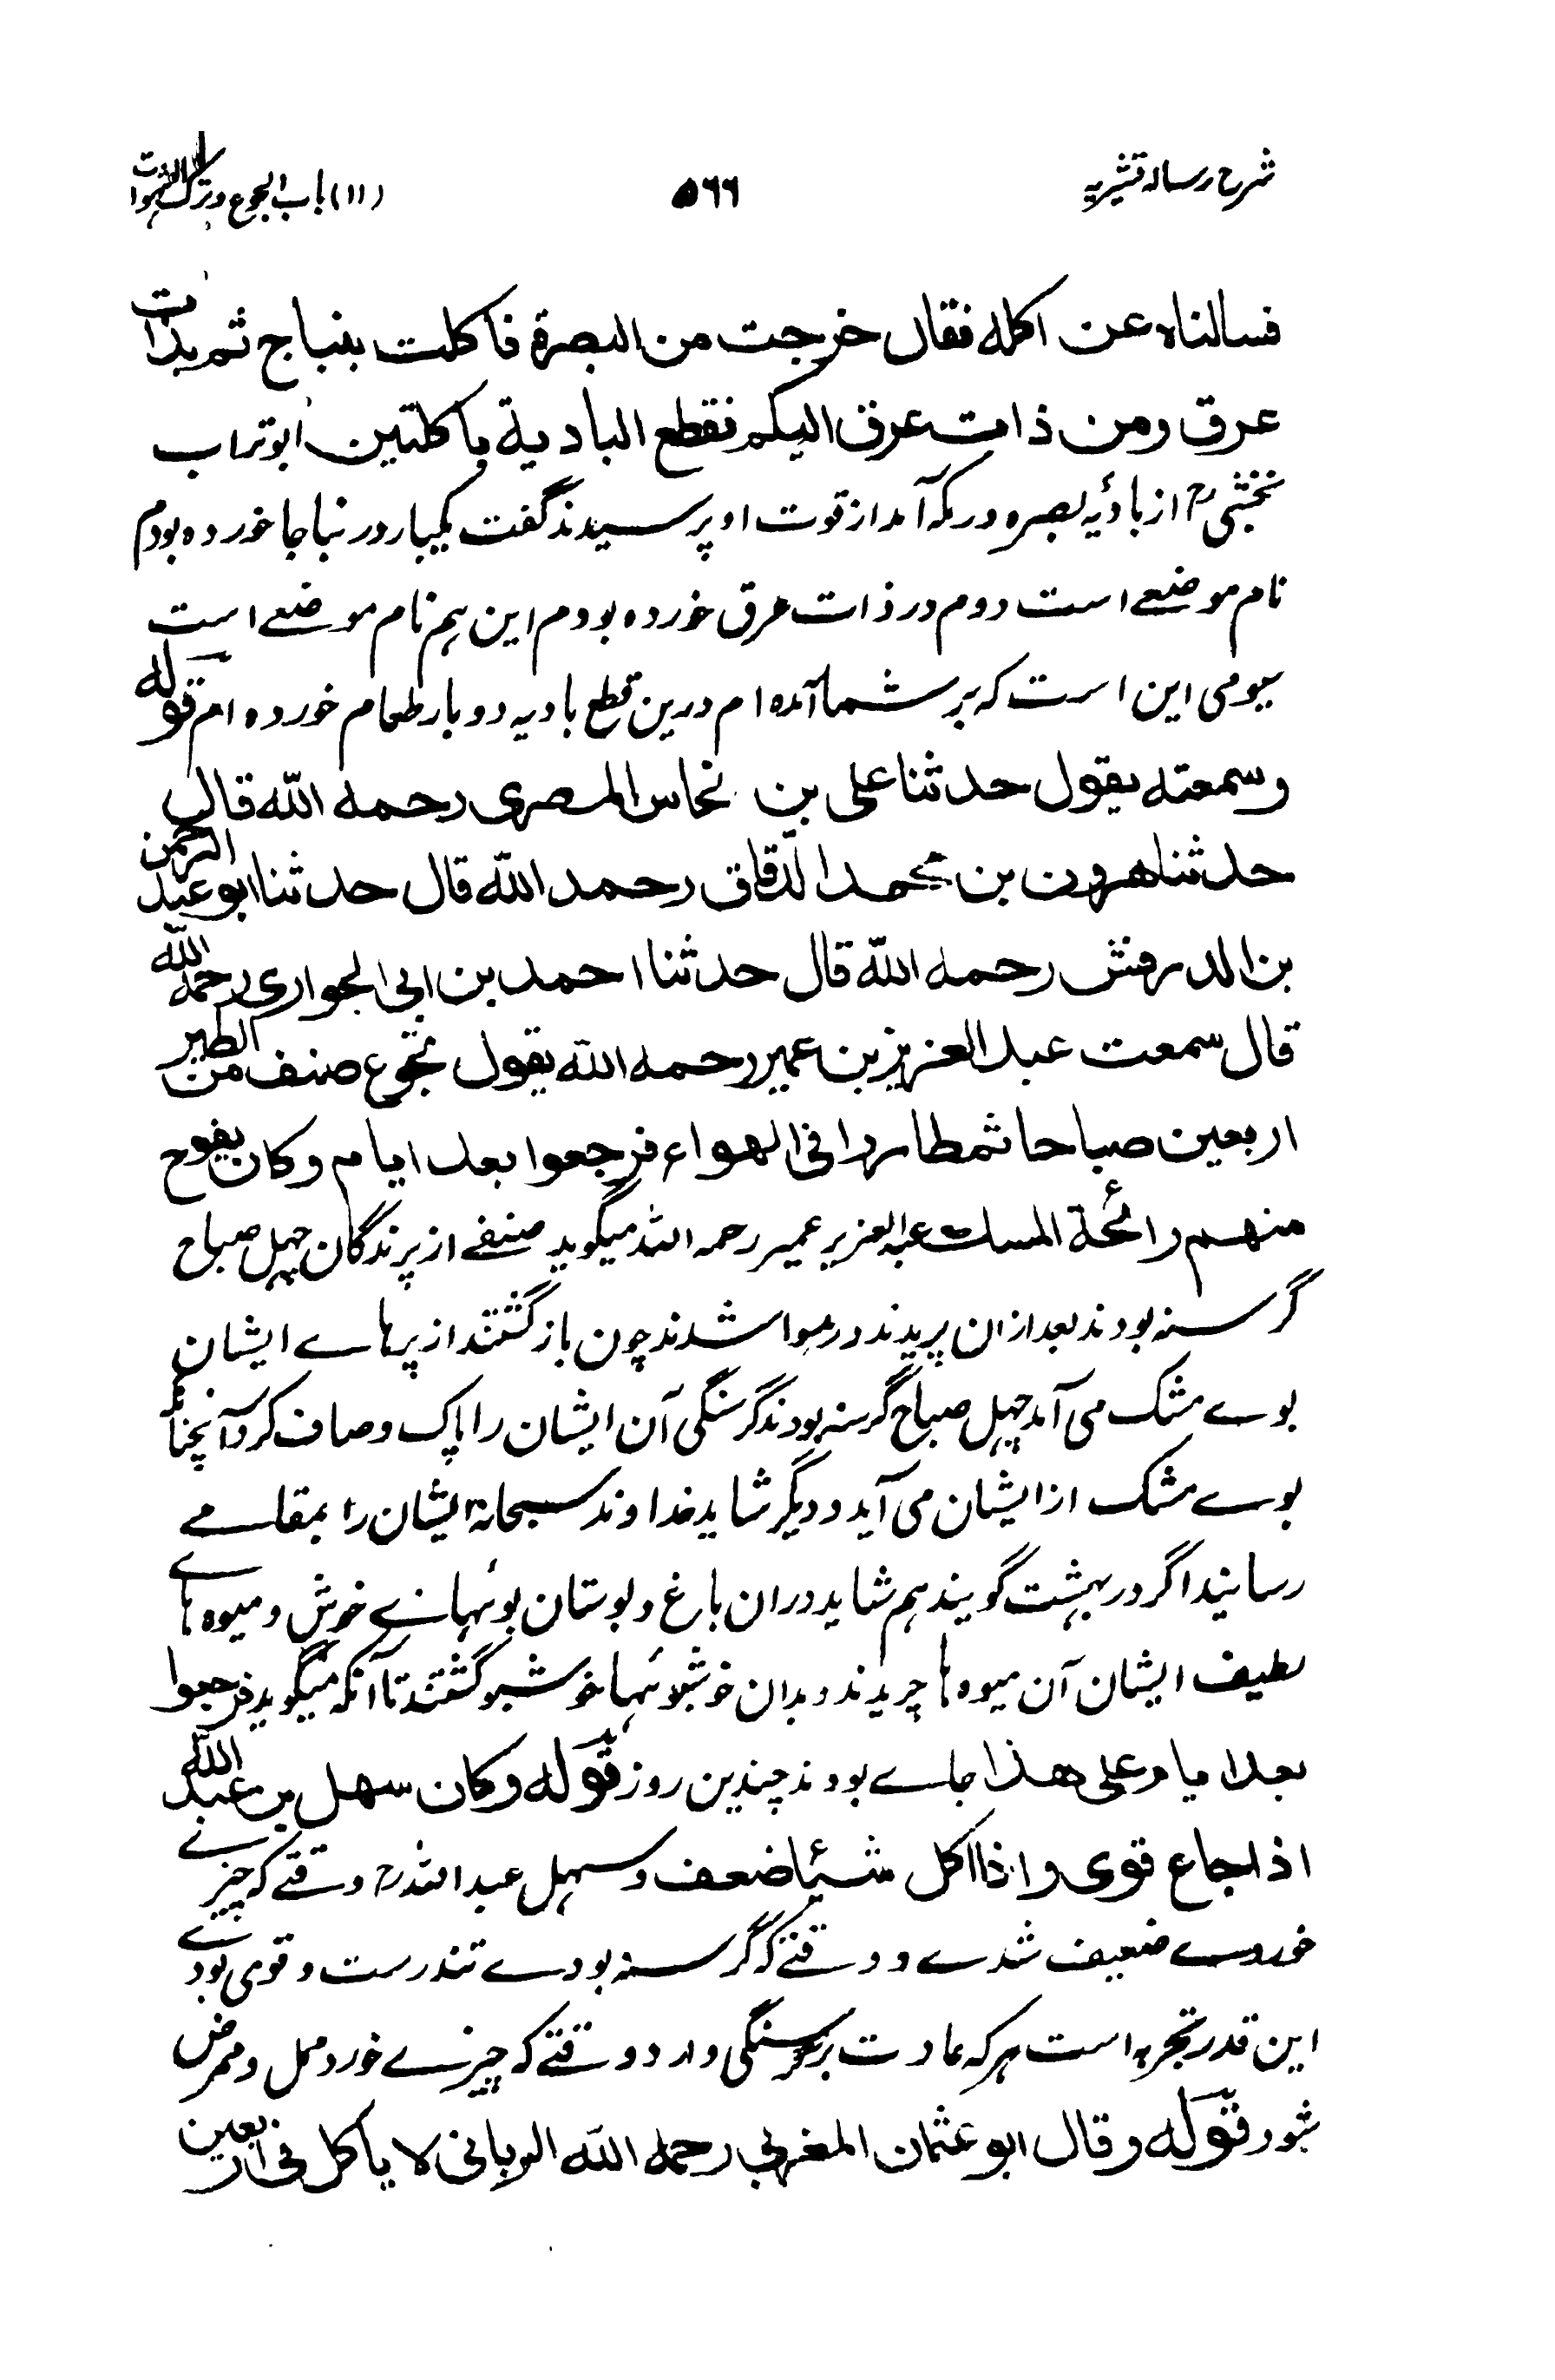 شرح رساله قشیریه
۵۶۶
(۱۱) باب الجوع وترک الشهوات
فسالناه عن اکله فقال خرجت من البصرة فاکلت بنباج ثم بذات
عرق ومن ذات عرق الیکم فقطع البادیة باکلتین ابوتراب
نخشبی رح از بادیٔه بصره در مکه آمد از قوت او پرسیدند گفت یکبار در نباجا خورده بودم
نام موضعے است دوم در ذات عرق خورده بودم این هم نام موضعے است
سیومی این است که بر شما آمده ام درین قطع بادیه دو بار طعام خورده ام قوله
وسمعته یقول حدثنا علی بن نحاس المصری رحمه الله قال
حدثنا هرون بن محمد الدقاق رحمه الله قال حدثنا ابو عبد الرحمن
بن الدرفش رحمه الله قال حدثنا احمد بن ابی الحواری رحمه الله
قال سمعت عبد العزیز بن عمیر رحمه الله یقول تجوع صنف من الطیر
اربعین صباحا ثم طاروا فی الهواء فرجعوا بعد ایام وکان یفوح
منهم رائحة المسک عبد العزیر عمیر رحمه الله میگوید صنفے از پرندگان چهل صباح
گرسنه بودند بعد ازان پریدند در هوا شدند چون باز گشتند از پرهاے ایشان
بوے مشک می آمد چهل صباح گرسنه بودند گرسنگی آن ایشان را پاک و صاف کرد آنچنانکه
بوے مشک از ایشان می آید و دیگر شاید خداوند سبحانه ایشان را بمقامے
رسانید اگر در بهشت گویند هم شاید دران باغ و بوستان بوئهاے خوش و میوه هاے
لطیف ایشان آن میوه ها چریدند و بدان خوشبوئیها خوشبو گشتند تا آنکه میگوید فرجعوا
بعد ایام وعلی هذا جاے بودند چندین روز قوله وکان سهل بن عبد الله
اذا جاع قوی واذا اکل شیئا ضعف وسهل عبد الله رح وقتے که چیزے
خوردے ضعیف شدے و وقتے که گرسنه بودے تندرست و قوی بودے
این قدر تجربه است هر که عادت بر گرسنگی دارد وقتے که چیزے خورد ممل و ممرض
شود قوله وقال ابو عثمان المغربی رحمه الله الربانی لا یاکل فی اربعین